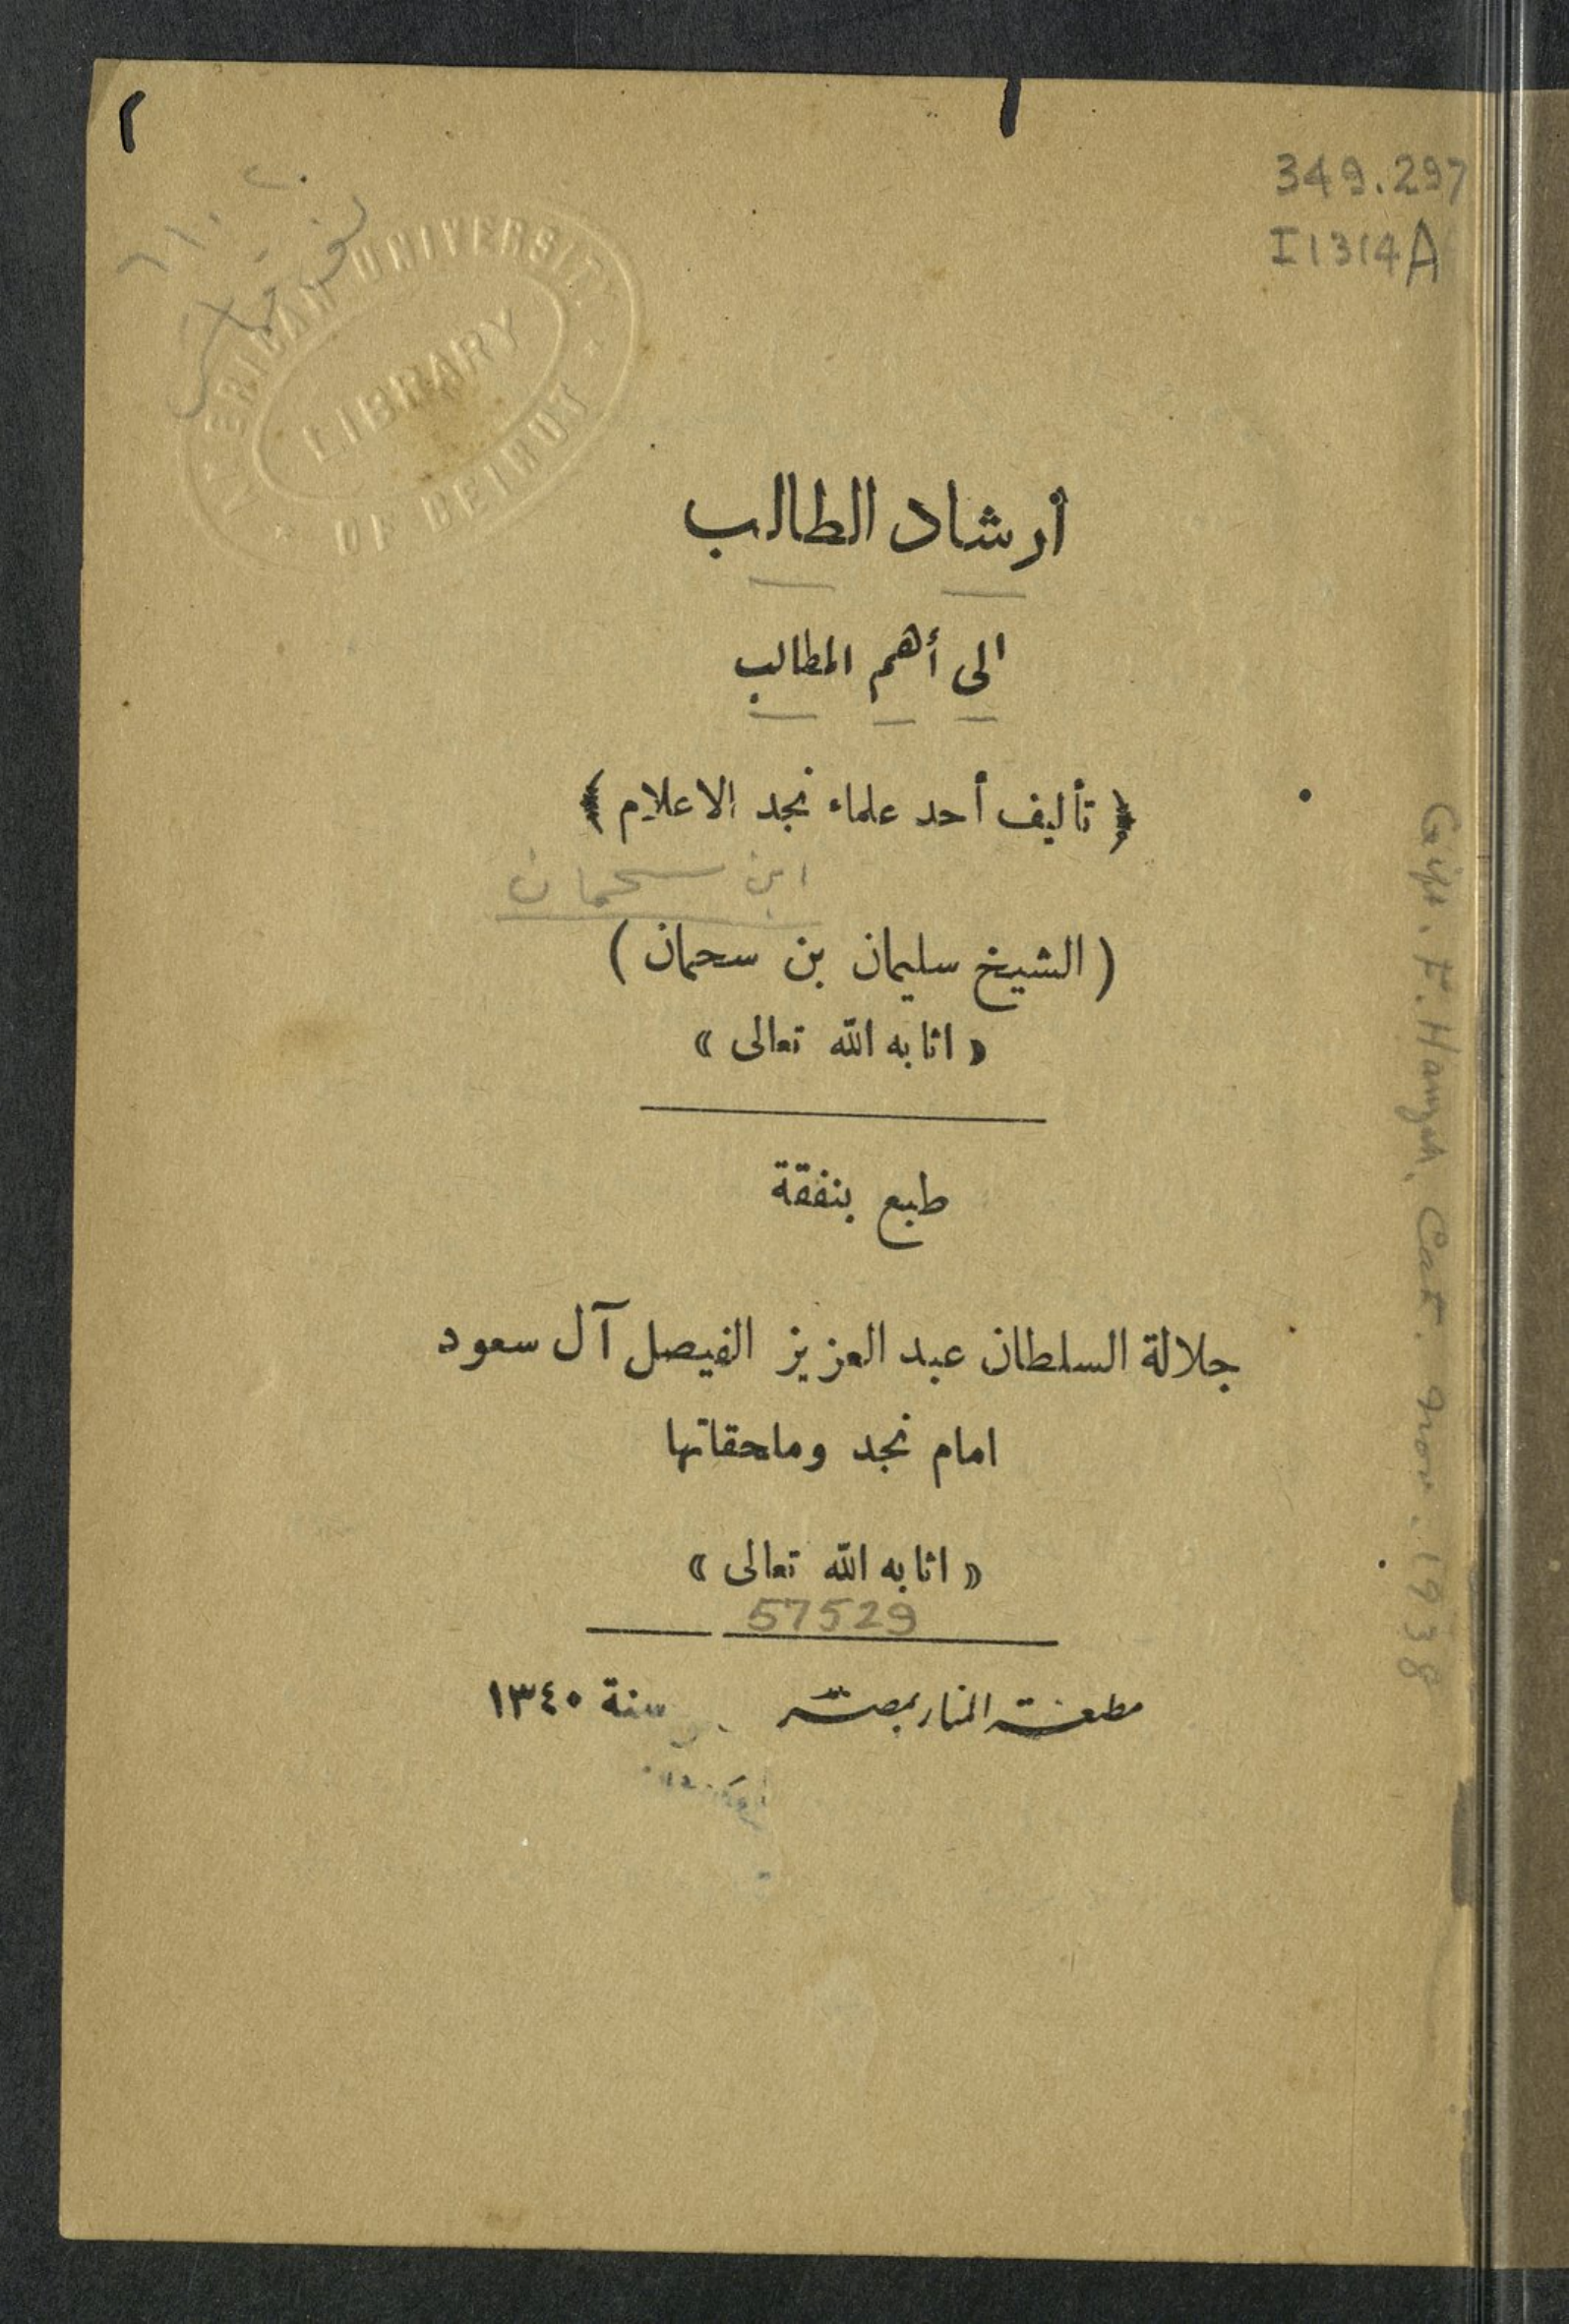 349.297
I1314A
AMERICAN UNIVERSITY
LIBRARY
OF BEIRUT
أرشاد الطالب
الى أهم المطالب
﴿ تأليف أحد علماء نجد الاعلام ﴾
ابن سحمان
( الشيخ سليمان بن سحمان )
« اثابه الله تعالى »
طبع بنفقة
جلالة السلطان عبد العزيز الفيصل آل سعود
امام نجد وملحقاتها
« اثابه الله تعالى »
57529
مطبعة المنار بمصر سنة ١٣٤٠
Gift. F. Hamzah, Cat. Nov. 1938